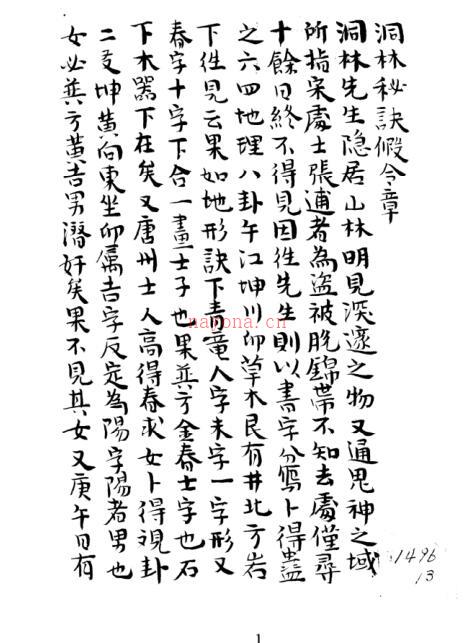 洞林秘訣假令章
洞林先生隐居山林明見深邃之物又通鬼神之域
所指宋處士張逋者為盗被脫錦帶不知去處僅尋
十餘日終不得見因往先生則以書字分寫卜得蠱
之六四地理八卦午江坤川仰草木民有井北方岩
下往見云果如地形訣下青竜人字未字一字形又
春字十字下合一畫士子也果其方金春士字也石
下木器下在矣又唐州士人高得春求女卜得視卦
二爻坤黄向東坐仰属吉字反定為陽字陽者男也
女必其方黄吉男潛奸矣果不見其女又庚午日有
nayona.cn
1496
13
1